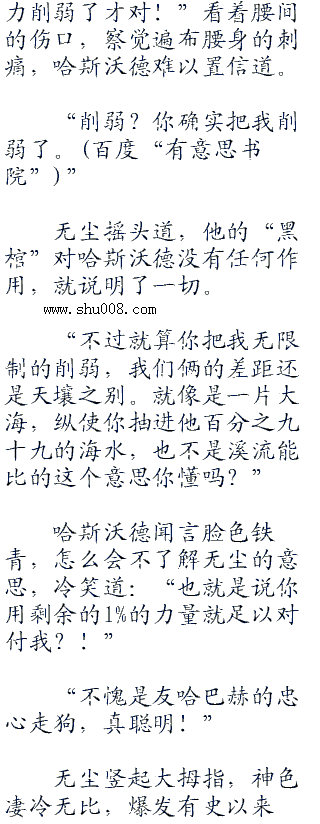 力削弱了才对！”看着腰间
的伤口，察觉遍布腰身的刺
痛，哈斯沃德难以置信道。
“削弱？你确实把我削
弱了。(百度“有意思书
院”)”
无尘摇头道，他的“黑
棺”对哈斯沃德没有任何作
用，就说明了一切。
www.shu008.com
“不过就算你把我无限
制的削弱，我们俩的差距还
是天壤之别。就像是一片大
海，纵使你抽进他百分之九
十九的海水，也不是溪流能
比的这个意思你懂吗？”
哈斯沃德闻言脸色铁
青，怎么会不了解无尘的意
思，冷笑道：“也就是说你
用剩余的1%的力量就足以对
付我？！”
“不愧是友哈巴赫的忠
心走狗，真聪明！”
无尘竖起大拇指，神色
凄冷无比，爆发有史以来